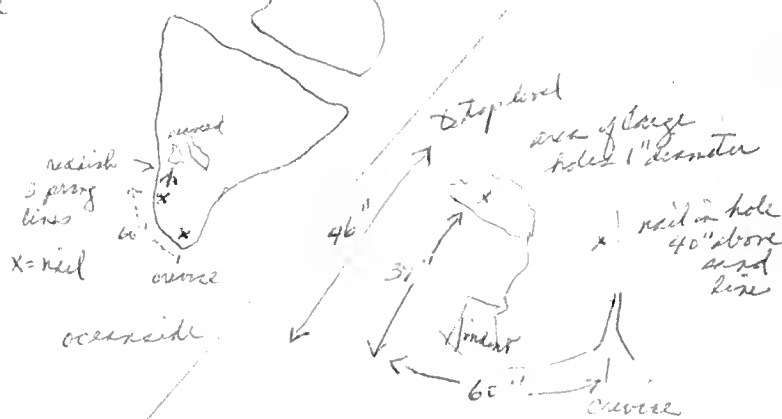 reddish
3 prong
lines
60"
X = nail
crevice
oceanside
top level
46"
area of large
holes 1" diameter
37"
nail in hole
40" above
sand
line
indent
60"
crevice